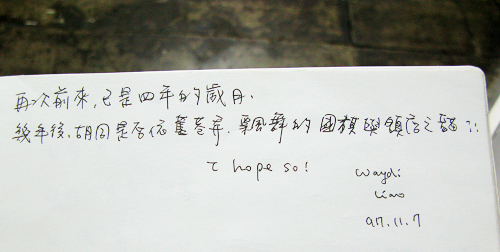 再次前來，已是四年的歲月、
幾年後，胡同是否依舊巷弄、飄舞的國旗與領店之貓
I hope so!
Waydi
Liao
97.11.7